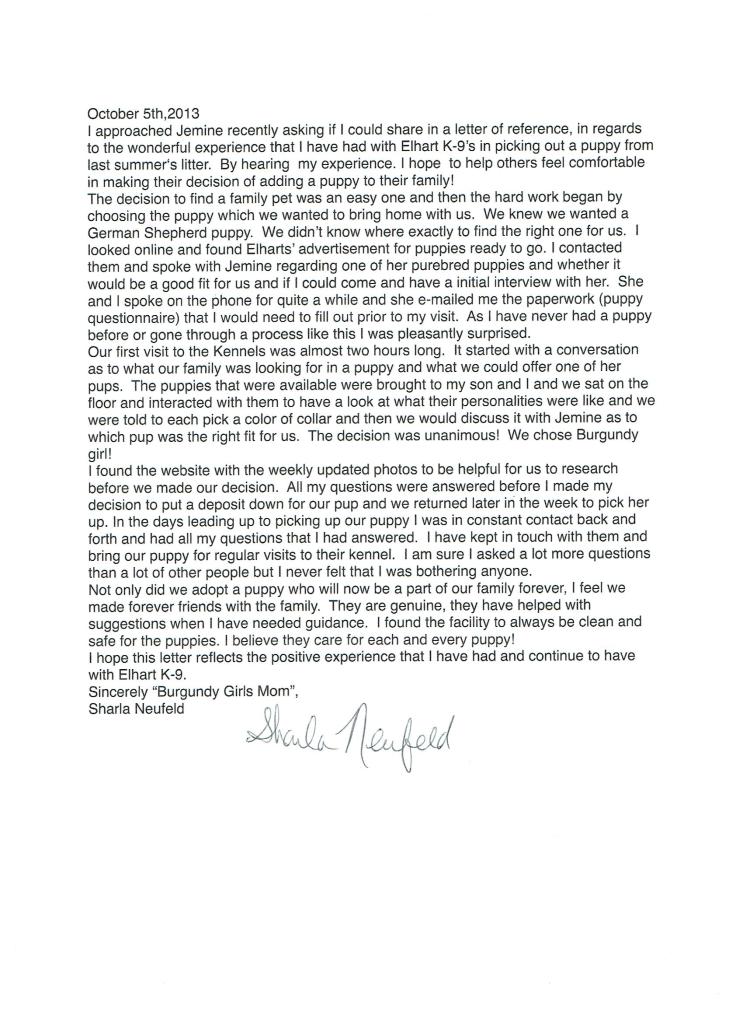 October 5th,2013
I approached Jemine recently asking if I could share in a letter of reference, in regards
to the wonderful experience that I have had with Elhart K-9's in picking out a puppy from
last summer's litter.  By hearing  my experience. I hope  to help others feel comfortable
in making their decision of adding a puppy to their family!
The decision to find a family pet was an easy one and then the hard work began by
choosing the puppy which we wanted to bring home with us.  We knew we wanted a
German Shepherd puppy.  We didn't know where exactly to find the right one for us.  I
looked online and found Elharts' advertisement for puppies ready to go. I contacted
them and spoke with Jemine regarding one of her purebred puppies and whether it
would be a good fit for us and if I could come and have a initial interview with her.  She
and I spoke on the phone for quite a while and she e-mailed me the paperwork (puppy
questionnaire) that I would need to fill out prior to my visit.  As I have never had a puppy
before or gone through a process like this I was pleasantly surprised.
Our first visit to the Kennels was almost two hours long.  It started with a conversation
as to what our family was looking for in a puppy and what we could offer one of her
pups.  The puppies that were available were brought to my son and I and we sat on the
floor and interacted with them to have a look at what their personalities were like and we
were told to each pick a color of collar and then we would discuss it with Jemine as to
which pup was the right fit for us.  The decision was unanimous!  We chose Burgundy
girl!
I found the website with the weekly updated photos to be helpful for us to research
before we made our decision.  All my questions were answered before I made my
decision to put a deposit down for our pup and we returned later in the week to pick her
up. In the days leading up to picking up our puppy I was in constant contact back and
forth and had all my questions that I had answered.  I have kept in touch with them and
bring our puppy for regular visits to their kennel.  I am sure I asked a lot more questions
than a lot of other people but I never felt that I was bothering anyone.
Not only did we adopt a puppy who will now be a part of our family forever, I feel we
made forever friends with the family.  They are genuine, they have helped with
suggestions when I have needed guidance.  I found the facility to always be clean and
safe for the puppies. I believe they care for each and every puppy!
I hope this letter reflects the positive experience that I have had and continue to have
with Elhart K-9.
Sincerely "Burgundy Girls Mom",
Sharla Neufeld
Sharla Neufeld